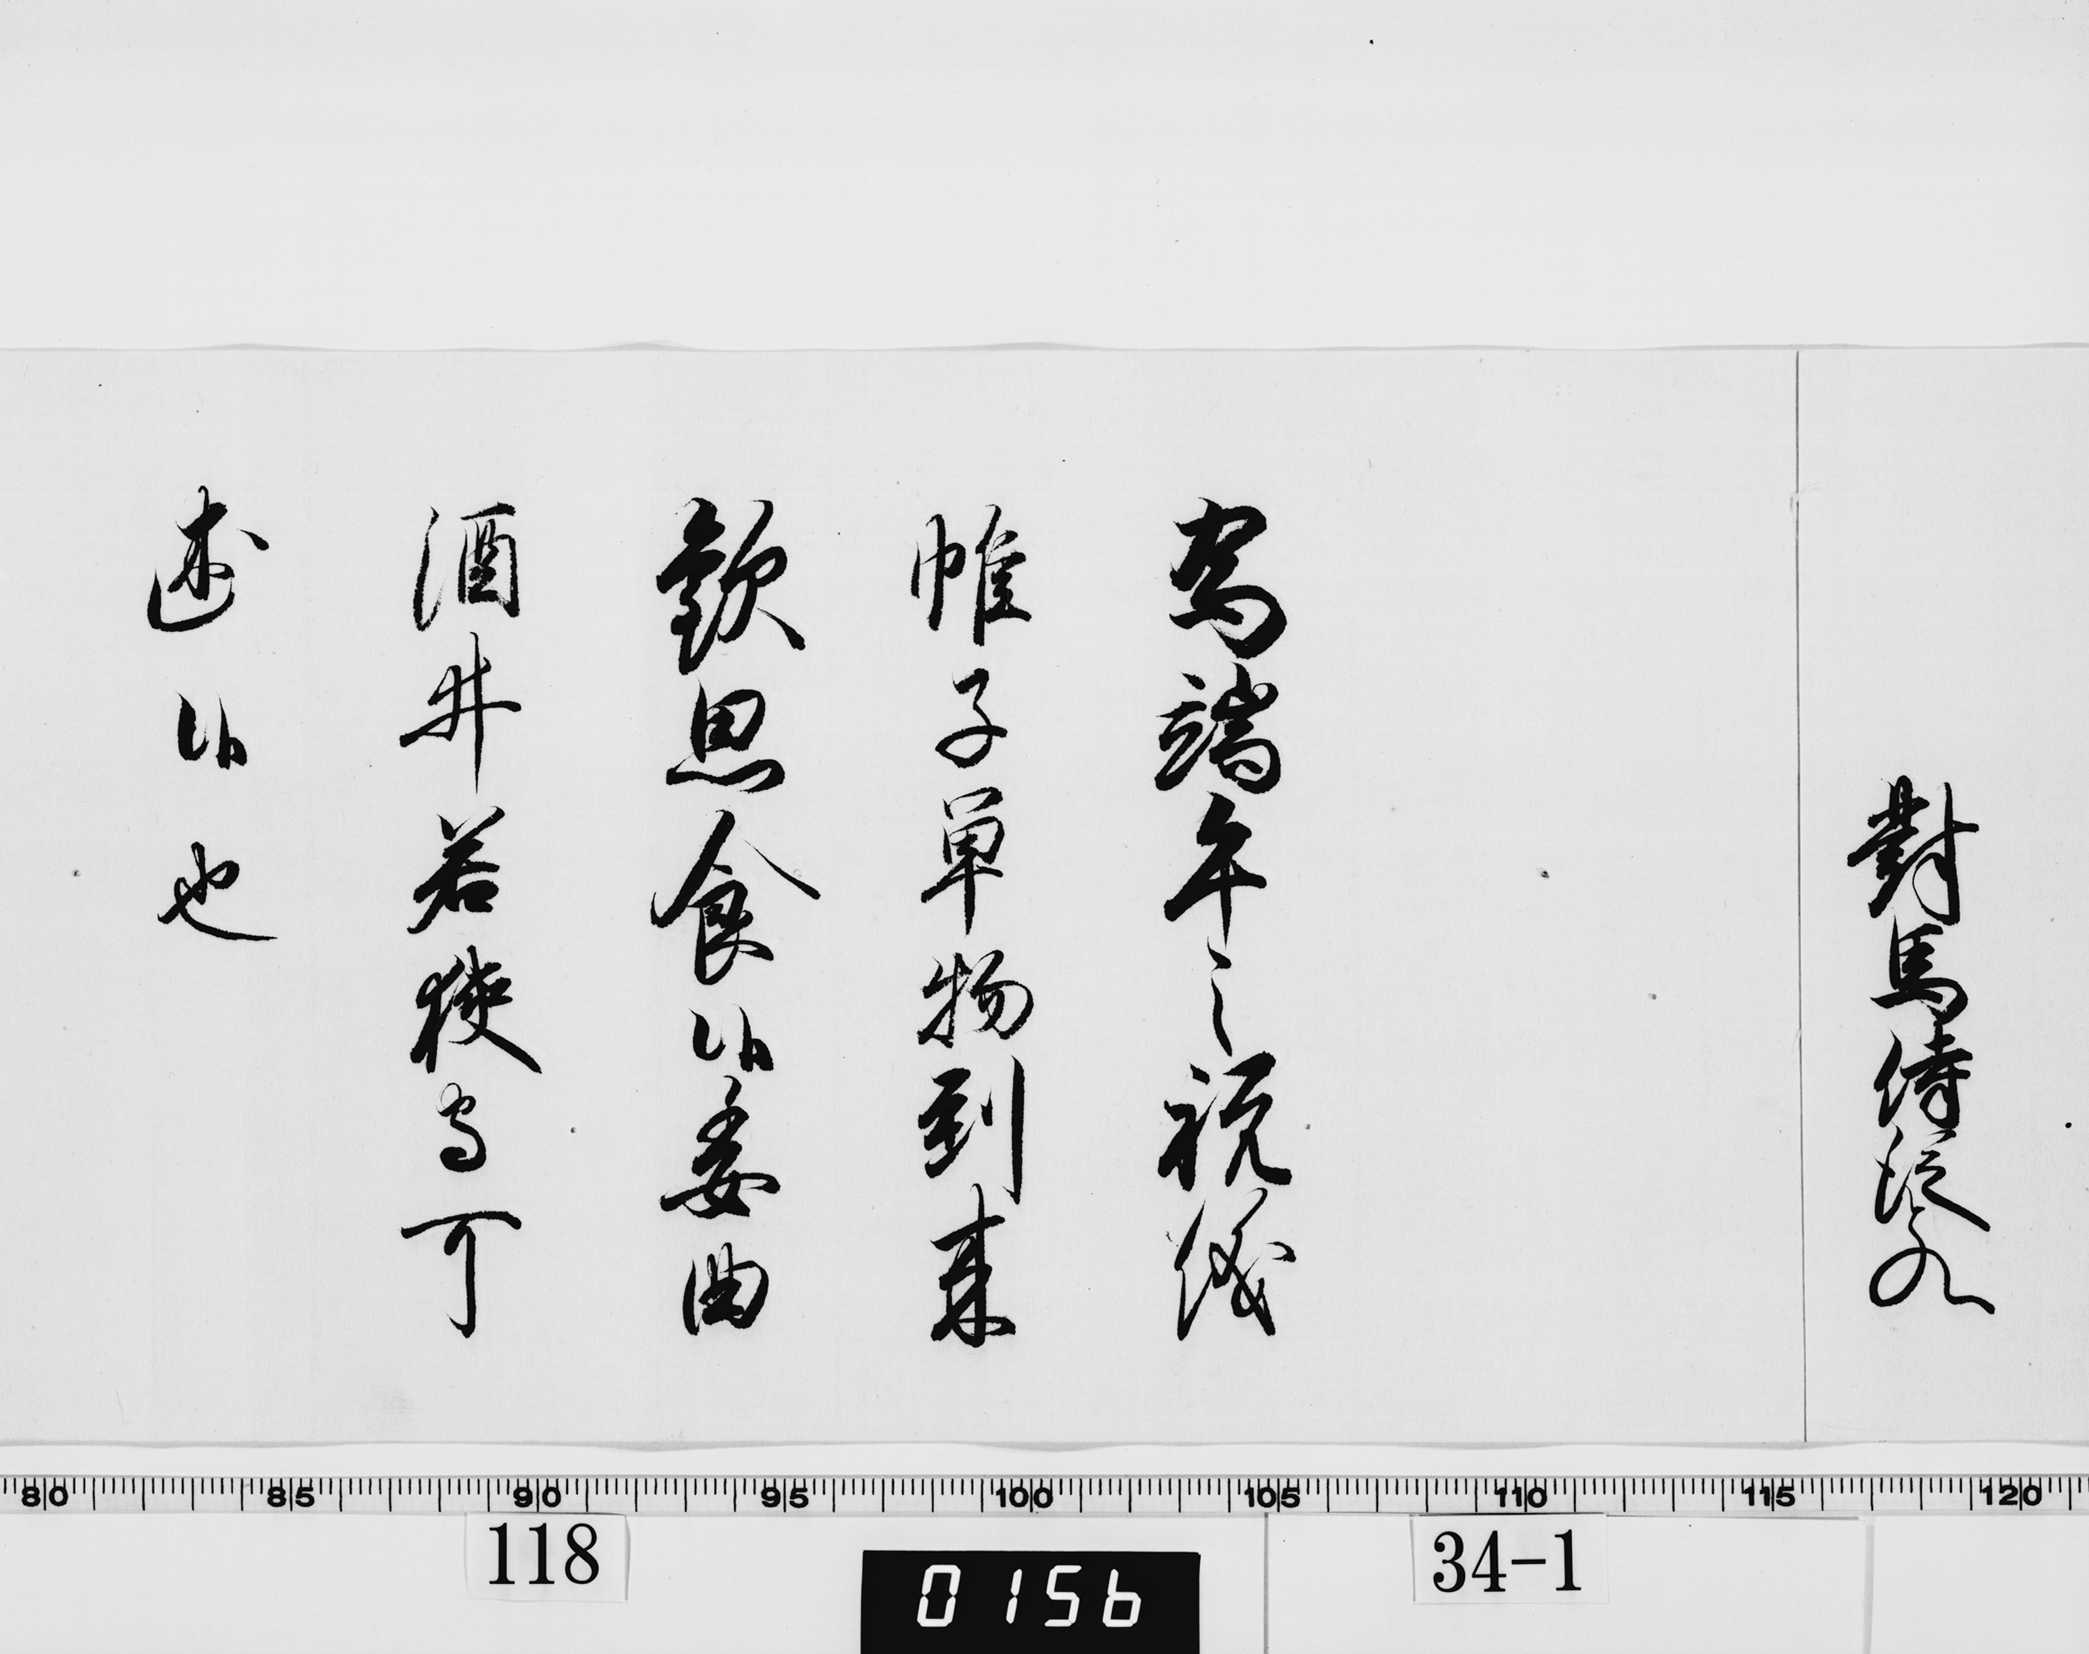 對馬侍従殿
為端午之祝儀
帷子単物到来
歓思食候委曲
酒井若狭守可
述候也
80 85 90 95 100 105 110 115 120
118
0156
34-1